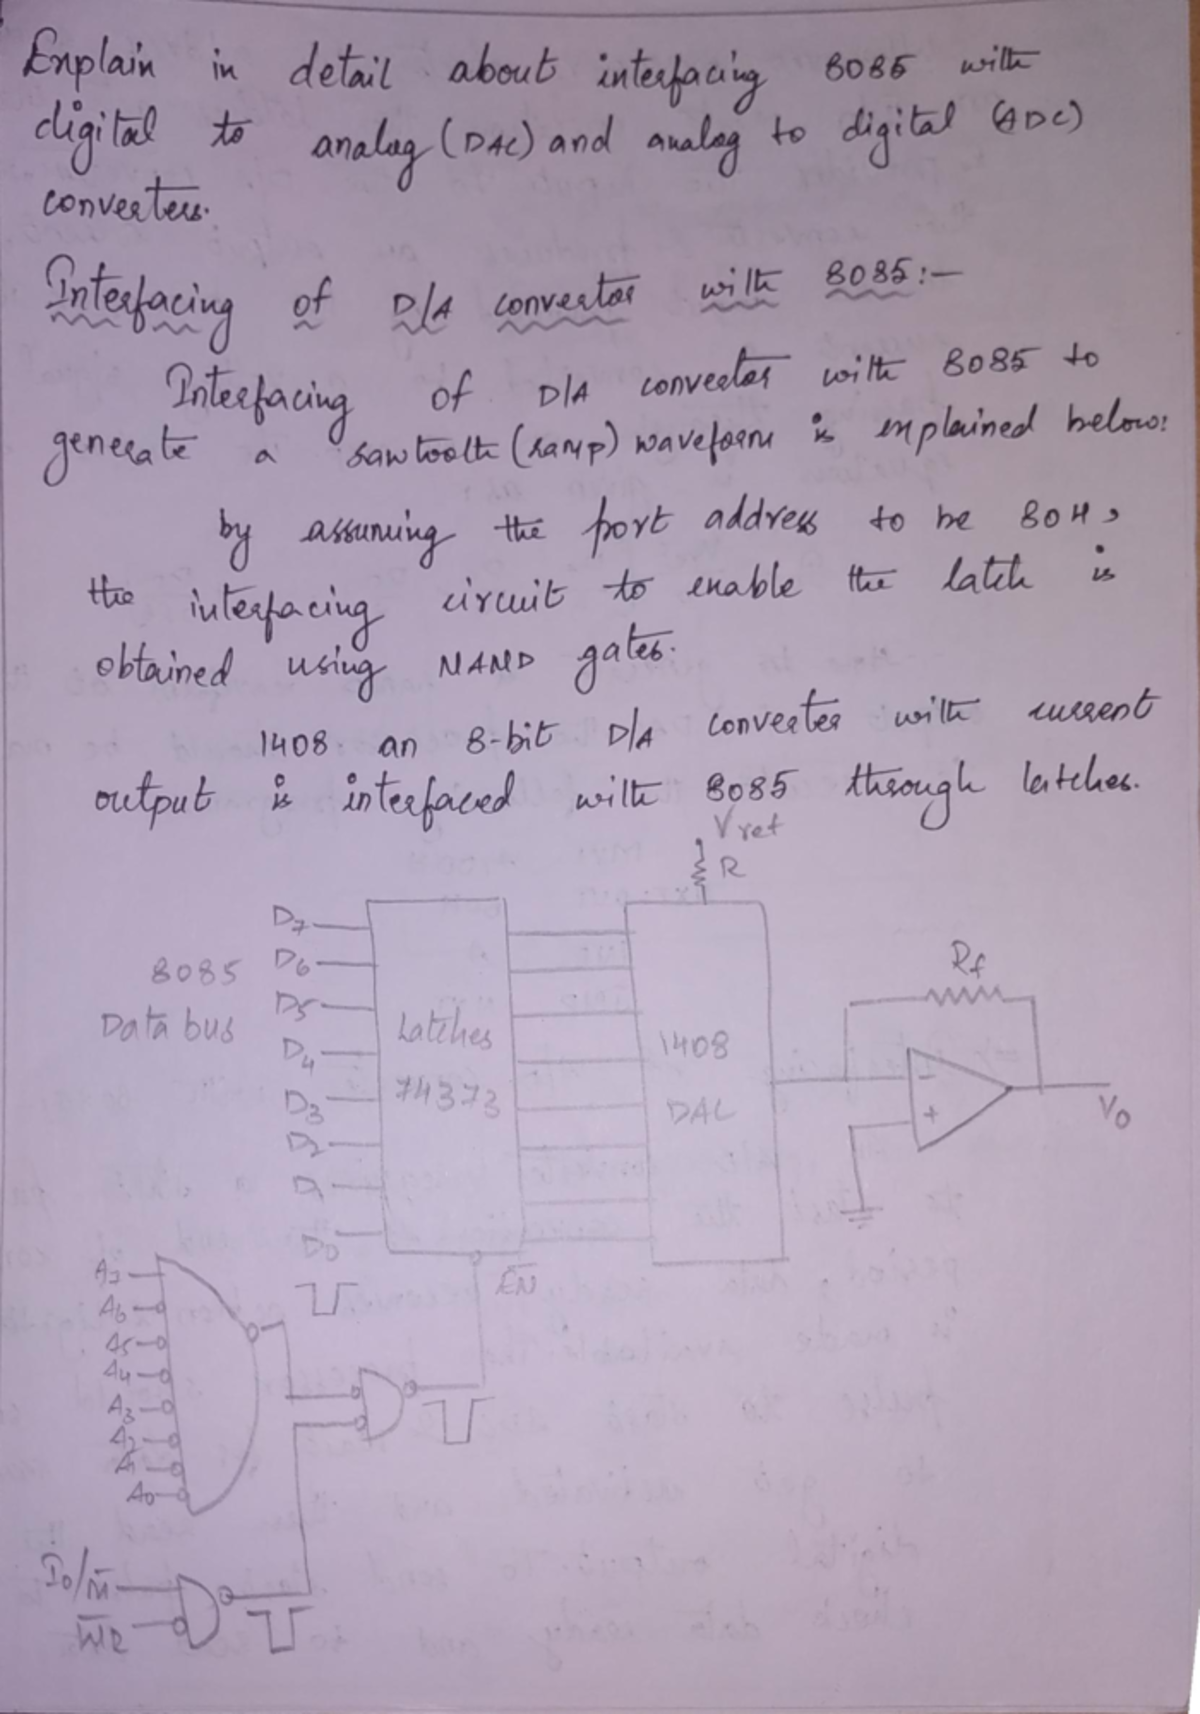 Explain in detail about interfacing 8085 with
digital to analog (DAC) and analog to digital (ADC)
converters.
Interfacing of D/A convertor with 8085:-
Interfacing of D/A convertor with 8085 to
generate a sawtooth (ramp) waveform is explained below:
by assuming the port address to be 80H,
the interfacing circuit to enable the latch is
obtained using NAND gates.
1408 an 8-bit D/A converter with current
output is interfaced with 8085 through latches.
Vref
R
D7
D6
D5
D4
D3
D2
D1
D0
8085
Data bus
Latches
74373
1408
DAC
Rf
-
+
V0
EN
A7
A6
A5
A4
A3
A2
A1
A0
Io/M̅
W̅R̅